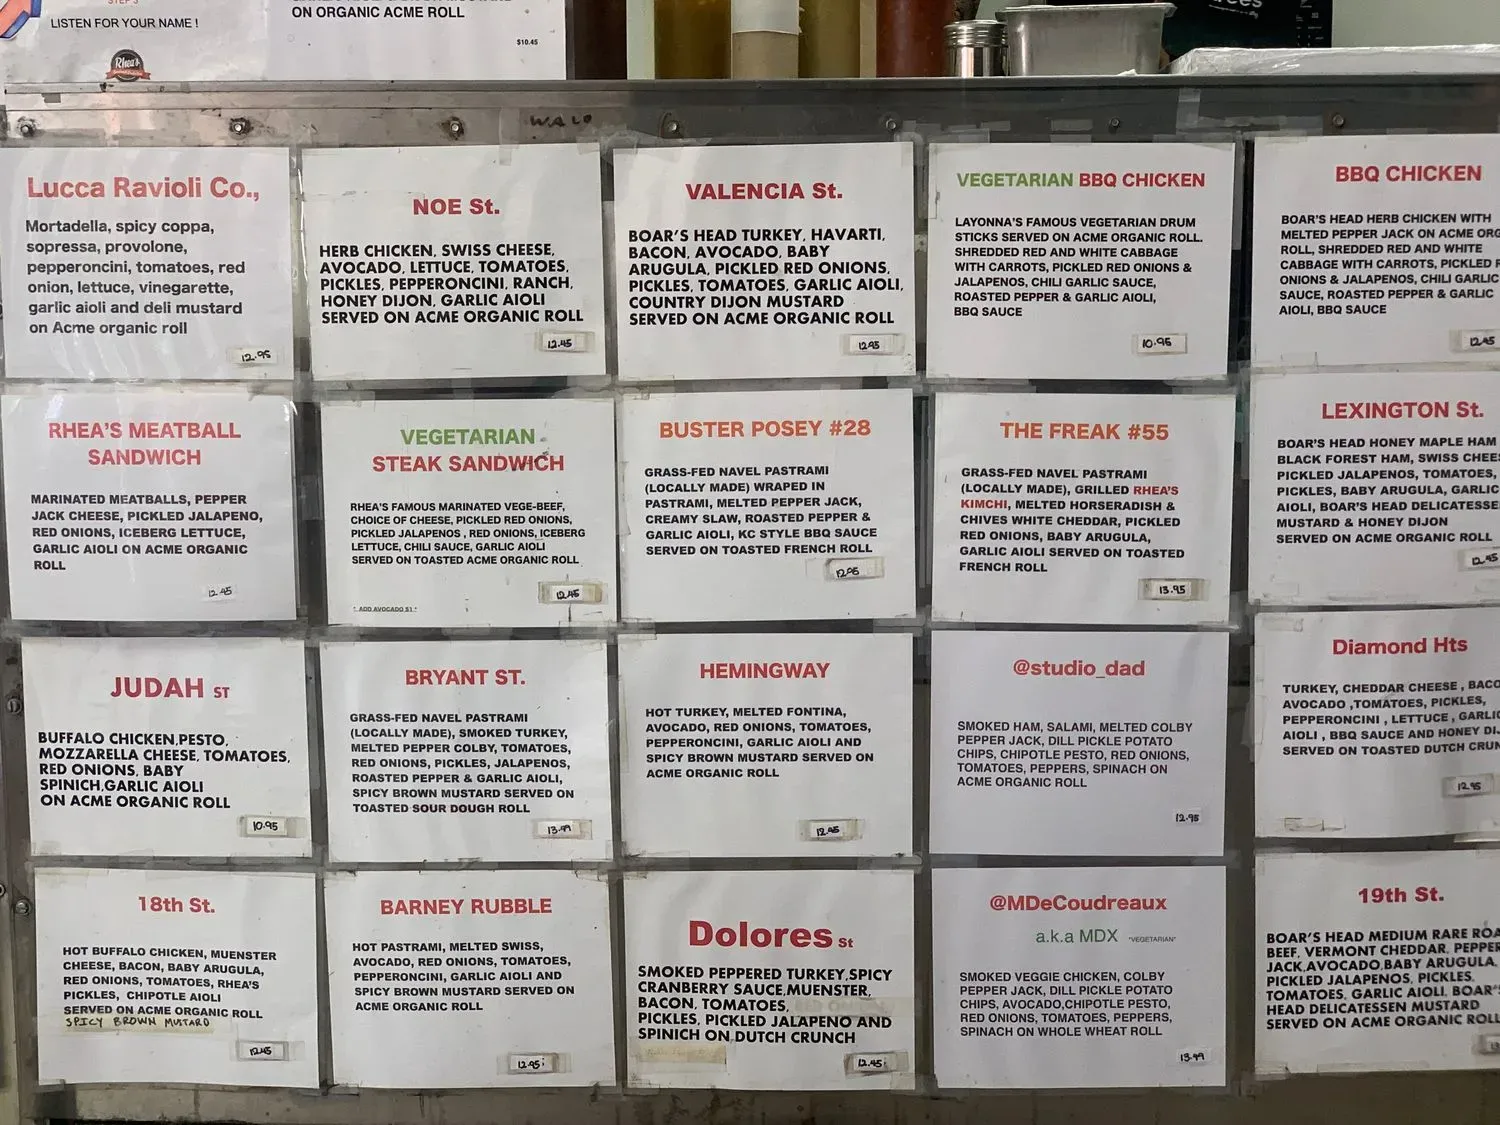 STEP 3
LISTEN FOR YOUR NAME !
Rhea's
ON ORGANIC ACME ROLL
$10.45
WALO
Lucca Ravioli Co.,
Mortadella, spicy coppa,
sopressa, provolone,
pepperoncini, tomatoes, red
onion, lettuce, vinegarette,
garlic aioli and deli mustard
on Acme organic roll
12.95
NOE St.
HERB CHICKEN, SWISS CHEESE,
AVOCADO, LETTUCE, TOMATOES,
PICKLES, PEPPERONCINI, RANCH,
HONEY DIJON, GARLIC AIOLI
SERVED ON ACME ORGANIC ROLL
12.45
VALENCIA St.
BOAR'S HEAD TURKEY, HAVARTI,
BACON, AVOCADO, BABY
ARUGULA, PICKLED RED ONIONS,
PICKLES, TOMATOES, GARLIC AIOLI,
COUNTRY DIJON MUSTARD
SERVED ON ACME ORGANIC ROLL
12.95
VEGETARIAN BBQ CHICKEN
LAYONNA'S FAMOUS VEGETARIAN DRUM
STICKS SERVED ON ACME ORGANIC ROLL.
SHREDDED RED AND WHITE CABBAGE
WITH CARROTS, PICKLED RED ONIONS &
JALAPENOS, CHILI GARLIC SAUCE,
ROASTED PEPPER & GARLIC AIOLI,
BBQ SAUCE
10.95
BBQ CHICKEN
BOAR'S HEAD HERB CHICKEN WITH
MELTED PEPPER JACK ON ACME ORG
ROLL, SHREDDED RED AND WHITE
CABBAGE WITH CARROTS, PICKLED R
ONIONS & JALAPENOS, CHILI GARLIC
SAUCE, ROASTED PEPPER & GARLIC
AIOLI, BBQ SAUCE
12.45
RHEA'S MEATBALL
SANDWICH
MARINATED MEATBALLS, PEPPER
JACK CHEESE, PICKLED JALAPENO,
RED ONIONS, ICEBERG LETTUCE,
GARLIC AIOLI ON ACME ORGANIC
ROLL
12.45
VEGETARIAN
STEAK SANDWICH
RHEA'S FAMOUS MARINATED VEGE-BEEF,
CHOICE OF CHEESE, PICKLED RED ONIONS,
PICKLED JALAPENOS , RED ONIONS, ICEBERG
LETTUCE, CHILI SAUCE, GARLIC AIOLI
SERVED ON TOASTED ACME ORGANIC ROLL
12.45
* ADD AVOCADO $1 *
BUSTER POSEY #28
GRASS-FED NAVEL PASTRAMI
(LOCALLY MADE) WRAPED IN
PASTRAMI, MELTED PEPPER JACK,
CREAMY SLAW, ROASTED PEPPER &
GARLIC AIOLI, KC STYLE BBQ SAUCE
SERVED ON TOASTED FRENCH ROLL
12.95
THE FREAK #55
GRASS-FED NAVEL PASTRAMI
(LOCALLY MADE), GRILLED RHEA'S
KIMCHI, MELTED HORSERADISH &
CHIVES WHITE CHEDDAR, PICKLED
RED ONIONS, BABY ARUGULA,
GARLIC AIOLI SERVED ON TOASTED
FRENCH ROLL
13.95
LEXINGTON St.
BOAR'S HEAD HONEY MAPLE HAM
BLACK FOREST HAM, SWISS CHEES
PICKLED JALAPENOS, TOMATOES,
PICKLES, BABY ARUGULA, GARLIC
AIOLI, BOAR'S HEAD DELICATESSE
MUSTARD & HONEY DIJON
SERVED ON ACME ORGANIC ROLL
12.45
JUDAH ST
BUFFALO CHICKEN,PESTO,
MOZZARELLA CHEESE, TOMATOES,
RED ONIONS, BABY
SPINICH,GARLIC AIOLI
ON ACME ORGANIC ROLL
10.95
BRYANT ST.
GRASS-FED NAVEL PASTRAMI
(LOCALLY MADE), SMOKED TURKEY,
MELTED PEPPER COLBY, TOMATOES,
RED ONIONS, PICKLES, JALAPENOS,
ROASTED PEPPER & GARLIC AIOLI,
SPICY BROWN MUSTARD SERVED ON
TOASTED SOUR DOUGH ROLL
13.99
HEMINGWAY
HOT TURKEY, MELTED FONTINA,
AVOCADO, RED ONIONS, TOMATOES,
PEPPERONCINI, GARLIC AIOLI AND
SPICY BROWN MUSTARD SERVED ON
ACME ORGANIC ROLL
12.45
@studio_dad
SMOKED HAM, SALAMI, MELTED COLBY
PEPPER JACK, DILL PICKLE POTATO
CHIPS, CHIPOTLE PESTO, RED ONIONS,
TOMATOES, PEPPERS, SPINACH ON
ACME ORGANIC ROLL
12.95
Diamond Hts
TURKEY, CHEDDAR CHEESE , BACO
AVOCADO ,TOMATOES, PICKLES,
PEPPERONCINI , LETTUCE , GARLIC
AIOLI , BBQ SAUCE AND HONEY DIJ
SERVED ON TOASTED DUTCH CRUN
12.95
18th St.
HOT BUFFALO CHICKEN, MUENSTER
CHEESE, BACON, BABY ARUGULA,
RED ONIONS, TOMATOES, RHEA'S
PICKLES, CHIPOTLE AIOLI
SERVED ON ACME ORGANIC ROLL
SPICY BROWN MUSTARD
12.45
BARNEY RUBBLE
HOT PASTRAMI, MELTED SWISS,
AVOCADO, RED ONIONS, TOMATOES,
PEPPERONCINI, GARLIC AIOLI AND
SPICY BROWN MUSTARD SERVED ON
ACME ORGANIC ROLL
12.95
Dolores St
SMOKED PEPPERED TURKEY,SPICY
CRANBERRY SAUCE,MUENSTER,
BACON, TOMATOES,
PICKLES, PICKLED JALAPENO AND
SPINICH ON DUTCH CRUNCH
12.45
@MDeCoudreaux
a.k.a MDX "VEGETARIAN"
SMOKED VEGGIE CHICKEN, COLBY
PEPPER JACK, DILL PICKLE POTATO
CHIPS, AVOCADO,CHIPOTLE PESTO,
RED ONIONS, TOMATOES, PEPPERS,
SPINACH ON WHOLE WHEAT ROLL
13.99
19th St.
BOAR'S HEAD MEDIUM RARE ROA
BEEF, VERMONT CHEDDAR, PEPPER
JACK,AVOCADO,BABY ARUGULA,
PICKLED JALAPENOS, PICKLES,
TOMATOES, GARLIC AIOLI, BOAR'S
HEAD DELICATESSEN MUSTARD
SERVED ON ACME ORGANIC ROLL